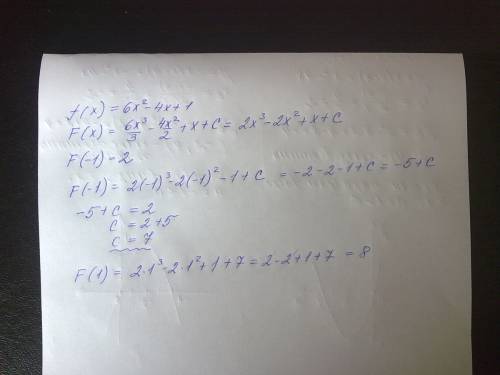 f(x) = 6x² - 4x + 1
F(x) = 6x³/3 - 4x²/2 + x + C = 2x³ - 2x² + x + C
F(-1) = 2
F(-1) = 2(-1)³ - 2(-1)² - 1 + C = -2 - 2 - 1 + C = -5 + C
-5 + C = 2
C = 2 + 5
C = 7
F(1) = 2·1³ - 2·1² + 1 + 7 = 2 - 2 + 1 + 7 = 8